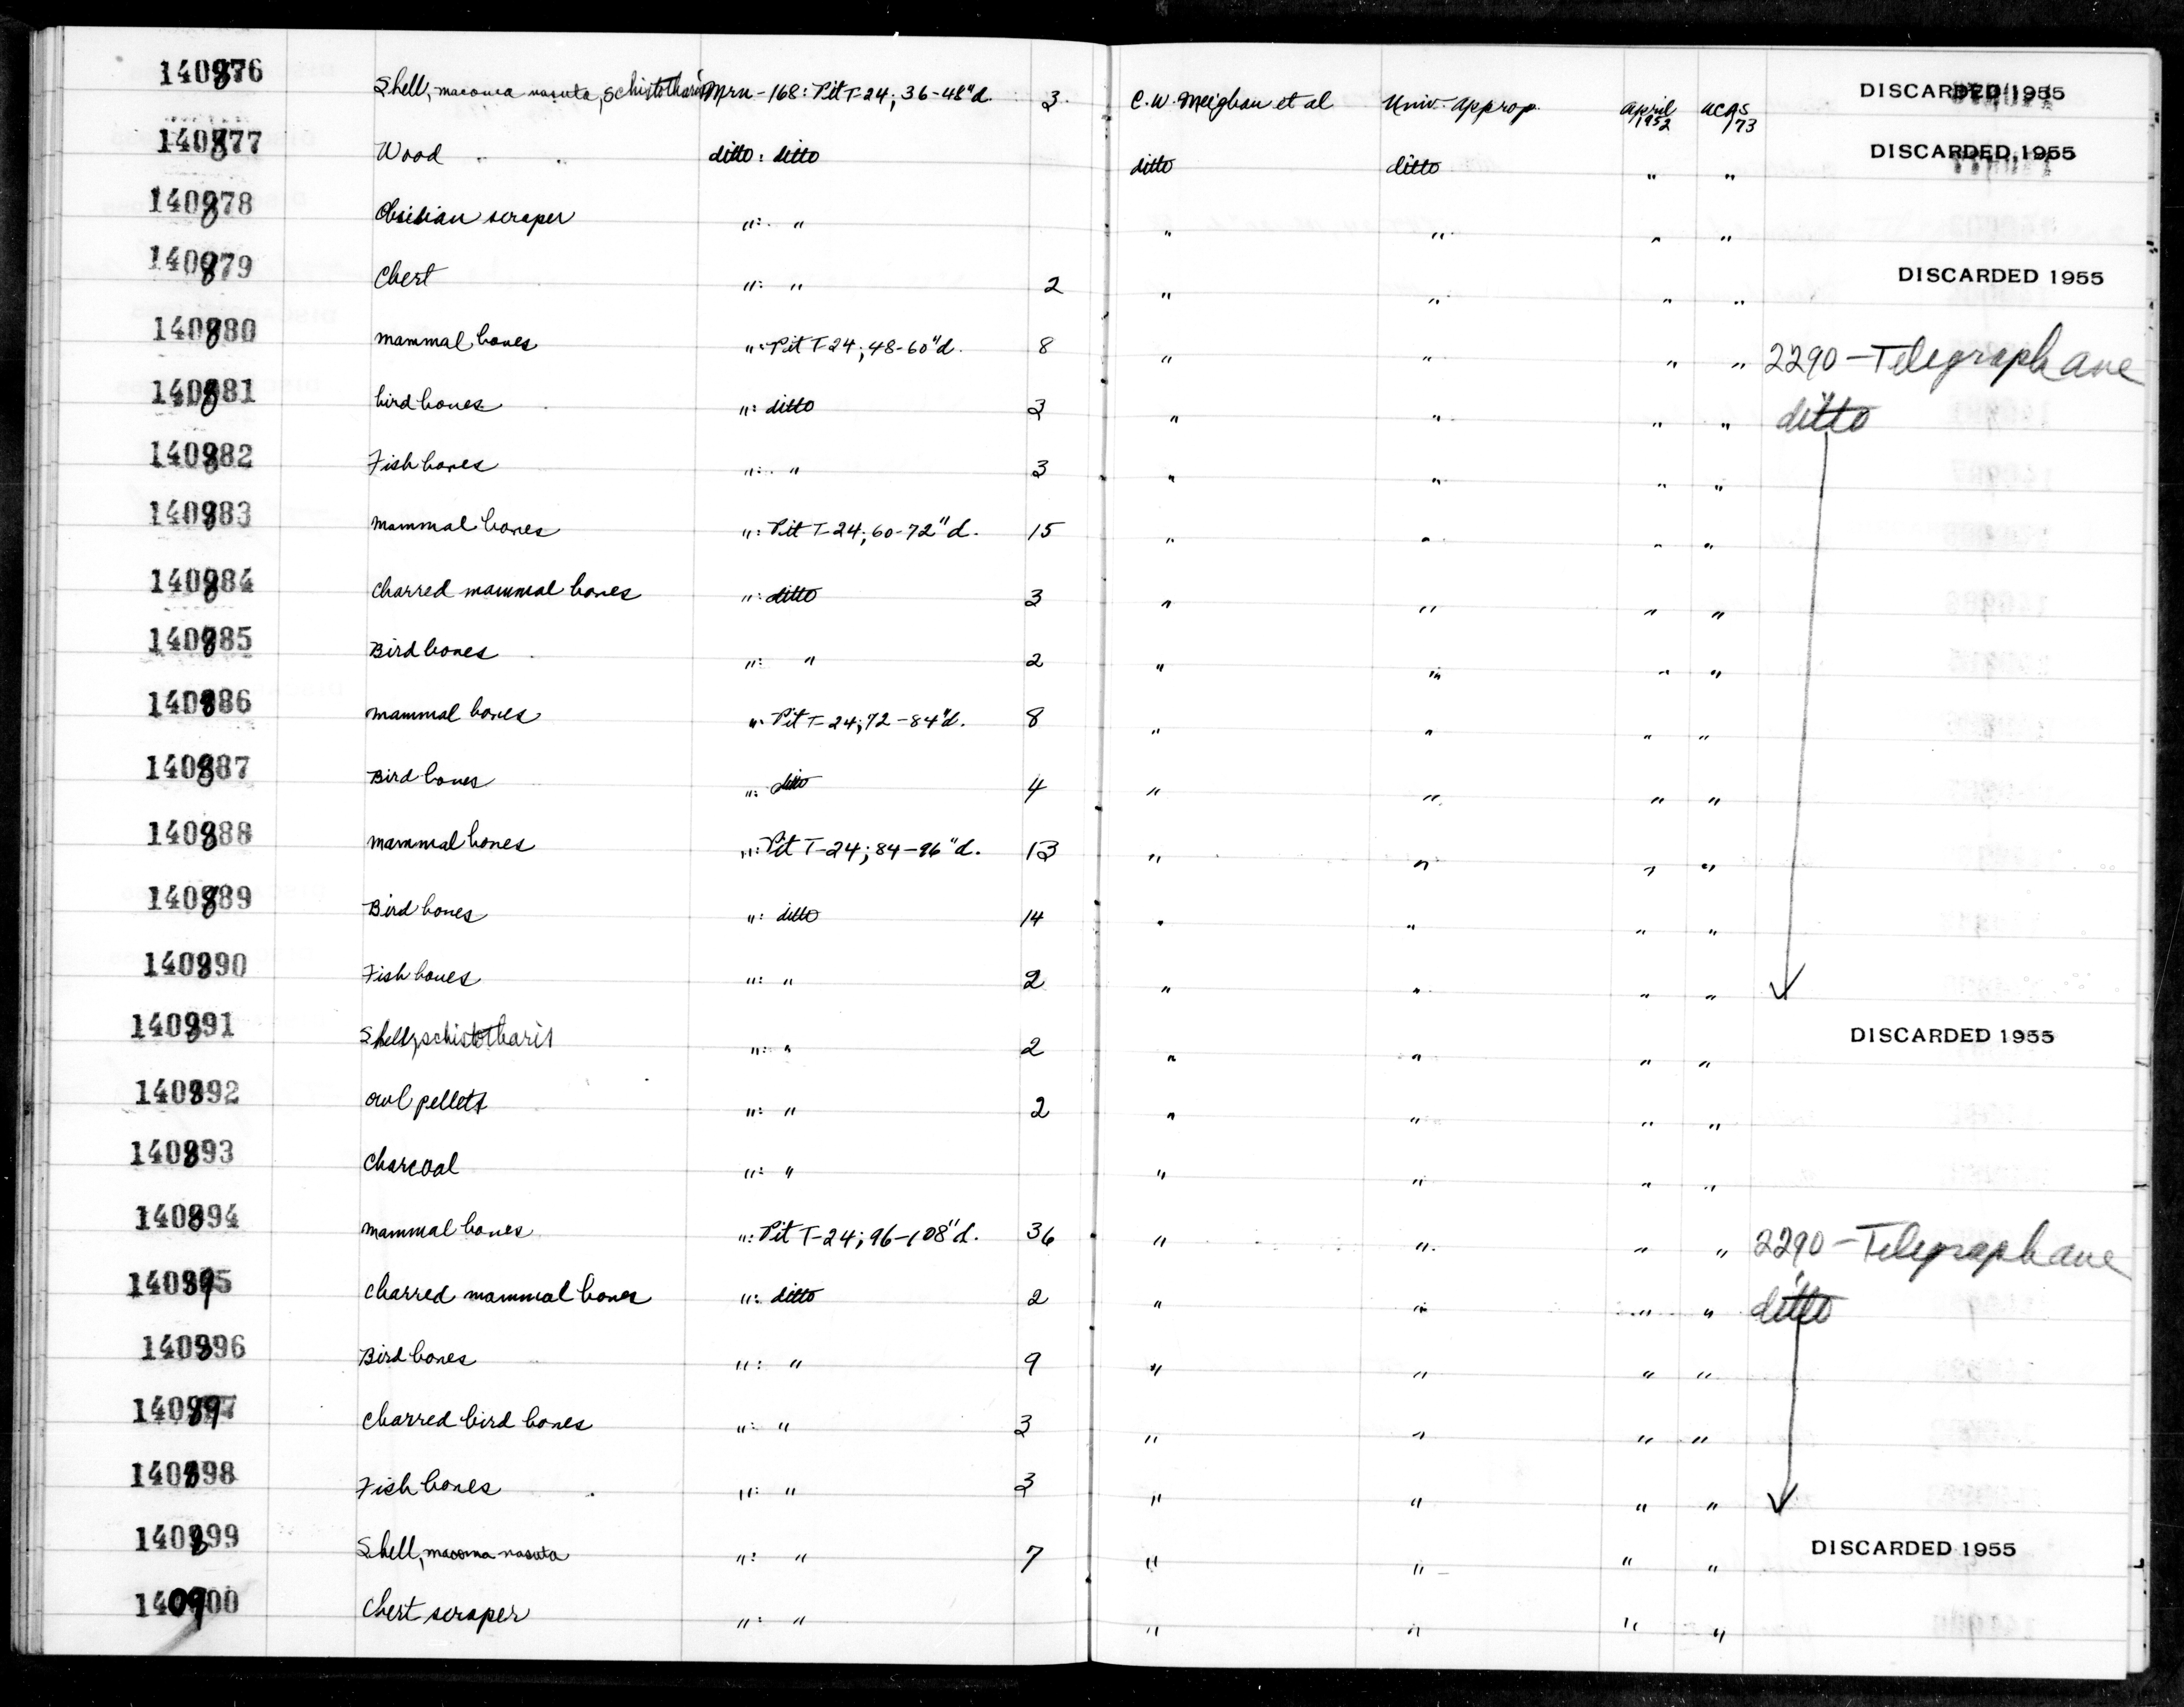 140876 Shell, macoma nasuta, schistotharis Mrn-168: Pit T-24; 36-48"d. 3 C.W. Meighan et al Univ. Approp. april 1952 UCAS 173 DISCARDED 1955
140877 Wood ditto: ditto ditto ditto " " DISCARDED 1955
140878 Obsidian scraper ": " " " " "
140879 Chert ": " 2 " " " " DISCARDED 1955
140880 mammal bones ": Pit T-24; 48-60"d. 8 " " " " 2290-Telegraph ave
140881 bird bones ": ditto 3 " " " " ditto
140882 Fish bones ": " 3 " " " "
140883 mammal bones ": Pit T-24; 60-72"d. 15 " " " "
140884 Charred mammal bones ": ditto 3 " " " "
140885 Bird bones ": " 2 " " " "
140886 mammal bones ": Pit T-24; 72-84"d. 8 " " " "
140887 Bird bones ": ditto 4 " " " "
140888 mammal bones ": Pit T-24; 84-96"d. 13 " " " "
140889 Bird bones ": ditto 14 " " " "
140890 Fish bones ": " 2 " " " "
140891 Shell, schistotharis ": " 2 " " " " DISCARDED 1955
140892 owl pellets ": " 2 " " " "
140893 Charcoal ": " " " " "
140894 mammal bones ": Pit T-24; 96-108"d. 36 " " " " 2290-Telegraph ave
140895 Charred mammal bones ": ditto 2 " " " " ditto
140896 Bird bones ": " 9 " " " "
140897 Charred bird bones ": " 3 " " " "
140898 Fish bones ": " 3 " " " "
140899 Shell, macoma nasuta ": " 7 " " " " DISCARDED 1955
140900 Chert scraper ": " " " " "